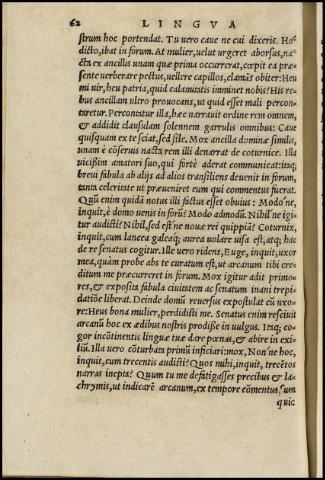 62 LINGVA
strum hoc portendat. Tu uero caue ne cui dixeris. Hoc
dicto, ibat in forum. At mulier, uelut urgeret aborsus, na-
cta ex ancillis unam quæ prima occurrerat, cœpit ea præ-
sente uerberare pectus, uellere capillos, clamās obiter: Heu
mi uir, heu patria, quid calamitatis imminet nobis? His re-
bus ancillam ultro prouocans, ut quid esset mali percon-
taretur. Percontatur illa, hæc narrauit ordine rem omnem,
& addidit clausulam solennem garrulis omnibus: Caue
quisquam ex te sciat, sed sile. Mox ancilla dominæ similis,
unam è cōseruis nacta rem illi denarrat de coturnice. Illa
uicißim amatori suo, qui fortè aderat communicat: itaq;
breui fabula ab alijs ad alios transiliens deuenit in forum,
tanta celeritate ut præueniret eum qui commentus fuerat.
Quū enim quidā notus illi factus esset obuius: Modo'ne,
inquit, è domo uenis in forū? Modo admodū. Nihil'ne igi-
tur audisti? Nihil, sed est'ne nouæ rei quippiā? Coturnix,
inquit, cum lancea galeaq; aurea uolare uisa est, atq; hac
de re senatus cogitur. Ille uero ridens, Euge, inquit, uxor
mea, quàm probe abs te curatum est, ut arcanum tibi cre-
ditum me præcurreret in forum. Mox igitur adit primo-
res, & exposita fabula ciuitatem ac senatum inani trepi-
datiōe liberat. Deinde domū reuersus expostulat cū uxo-
re: Heus bona mulier, perdidisti me. Senatus enim resciuit
arcanū hoc ex ædibus nostris prodisse in uulgus. Itaq; co-
gor incōtinentis linguæ tuæ dare pœnas, & abire in exi-
liū. Illa uero cōturbata primū inficiari: mox, Non'ne hoc,
inquit, cum trecentis audisti? Quos mihi, inquit, trecētos
narras inepta? Quum tu me defatigasses precibus & la-
chrymis, ut indicarē arcanum, ex tempore cōmentus sum
quic